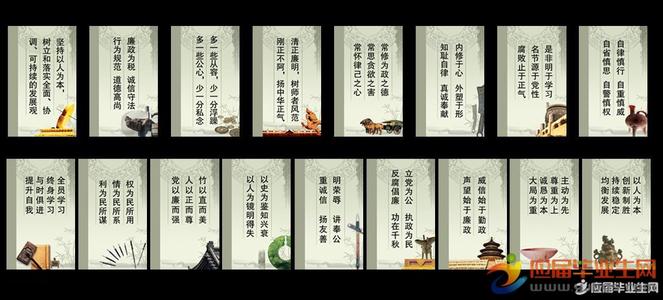 坚持以人为本，
树立和落实全面、协
调、可持续的发展观
廉政为税 诚信守法
行为规范 道德高尚
多一些从容，少一分浮躁
多一些公心，少一分私念
清正廉明，树师者风范
刚正不阿，扬中华正气
常修为政之德
常思贪欲之害
常怀律己之心
内修于心 外塑于形
知耻自律 真诚奉献
是非明于学习
名节源于党性
腐败止于正气
自律慎行 自重慎威
自省慎思 自警慎权
全员学习
终身学习
与时俱进
提升自我
权为民所用
情为民所系
利为民所谋
竹以直而美
人以正而尊
党以廉而强
以史为鉴知兴衰
以人为镜明得失
明荣辱 讲奉公
重诚信 扬友善
立党为公 执政为民
反腐倡廉 功在千秋
威信始于勤政
声望始于廉政
主动为先
尊重为上
诚恳为本
大局为重
以人为本
创新制胜
持续稳定
均衡发展
应届毕业生网
应届毕业生网